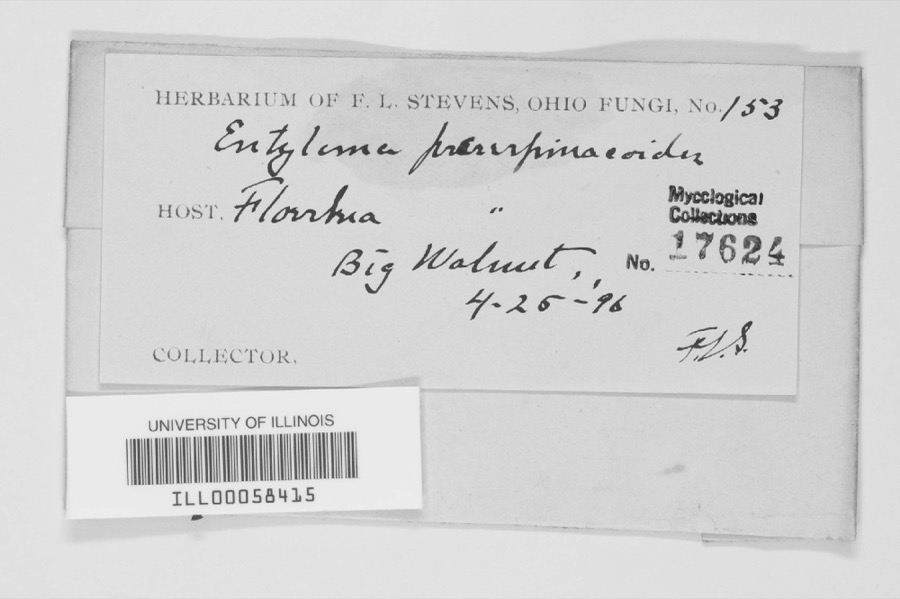 HERBARIUM OF F. L. STEVENS, OHIO FUNGI, No. 153
Entyloma
HOST, Floerkea "
Mycological
Collections
No. 17624
Big Walnut,
4-25-96
F.L.S.
COLLECTOR,
UNIVERSITY OF ILLINOIS
ILL00058415